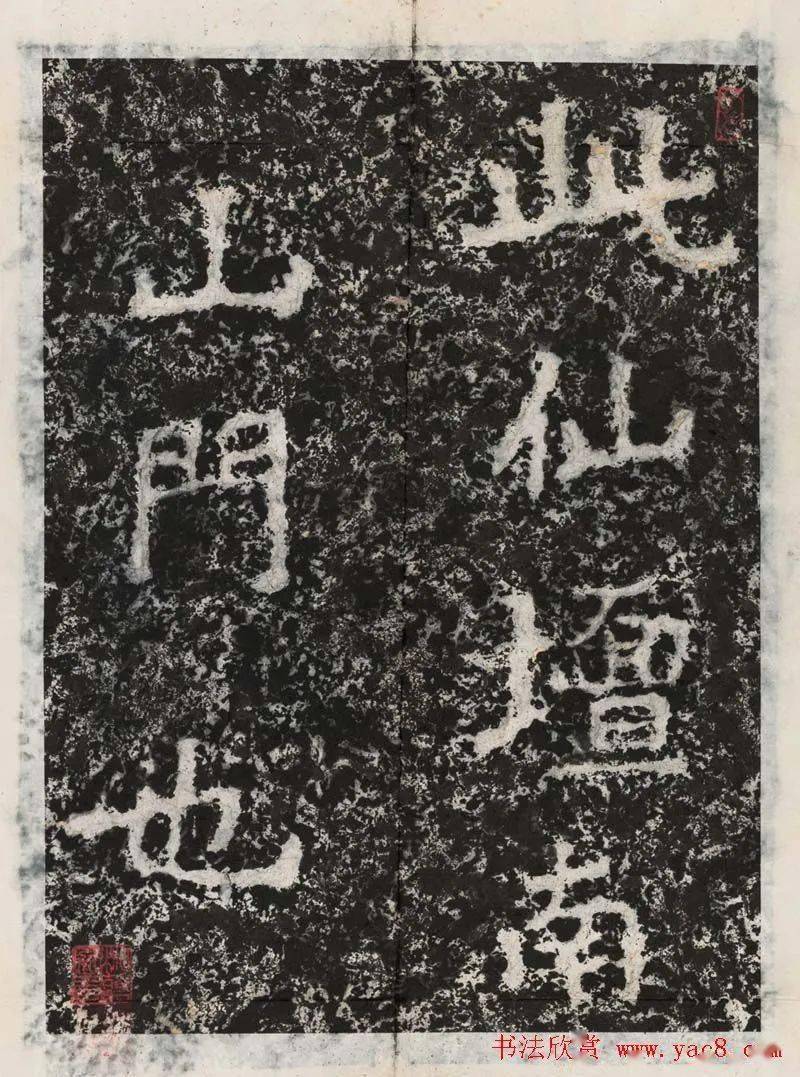 此仙壇南
山門也
书法欣赏 www.yac8.com